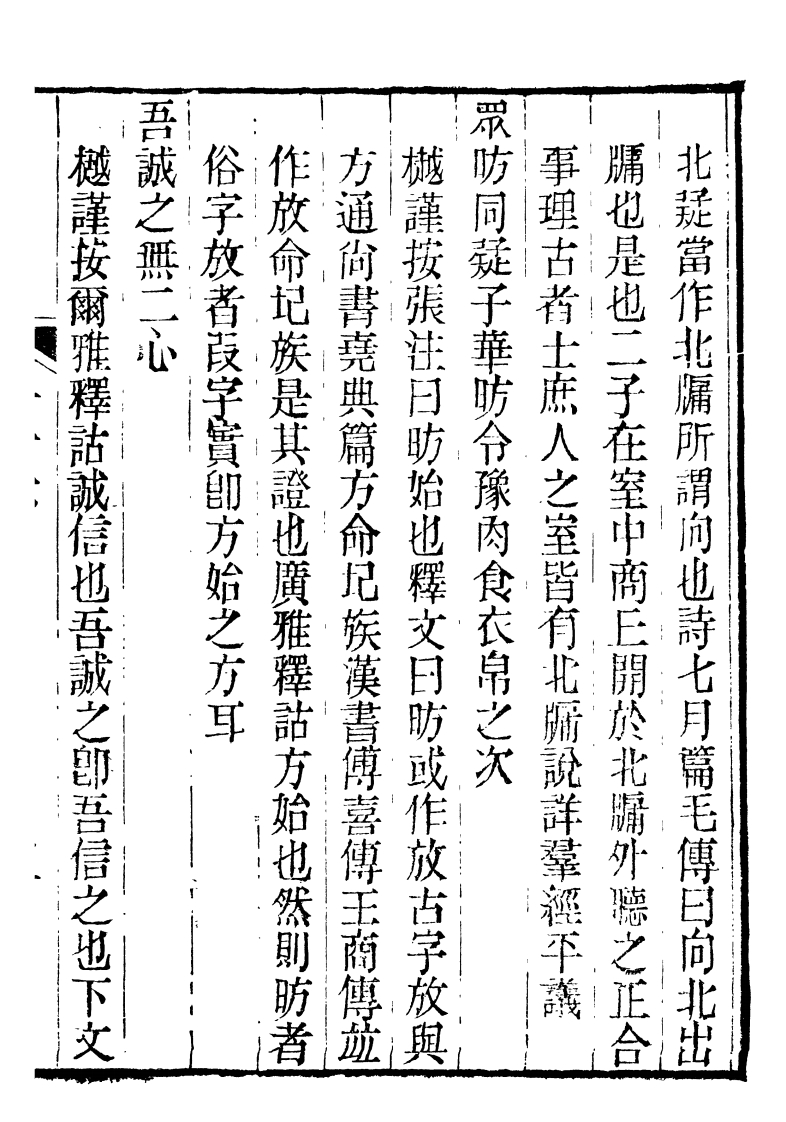 北疑當作北牖所謂向也詩七月篇毛傳曰向北出
牖也是也二子在室中商丘開於北牖外聽之正合
事理古者士庶人之室皆有北牖說詳羣經平議
眾昉同疑子華昉令豫肉食衣帛之次
樾謹按張注曰昉始也釋文曰昉或作放古字放與
方通尙書堯典篇方命圮族漢書傅喜傳王商傳竝
作放命圮族是其證也廣雅釋詁方始也然則昉者
俗字放者叚字實卽方始之方耳
吾誠之無二心
樾謹按爾雅釋詁誠信也吾誠之卽吾信之也下文